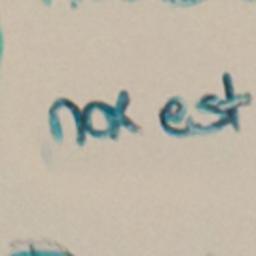 nox est